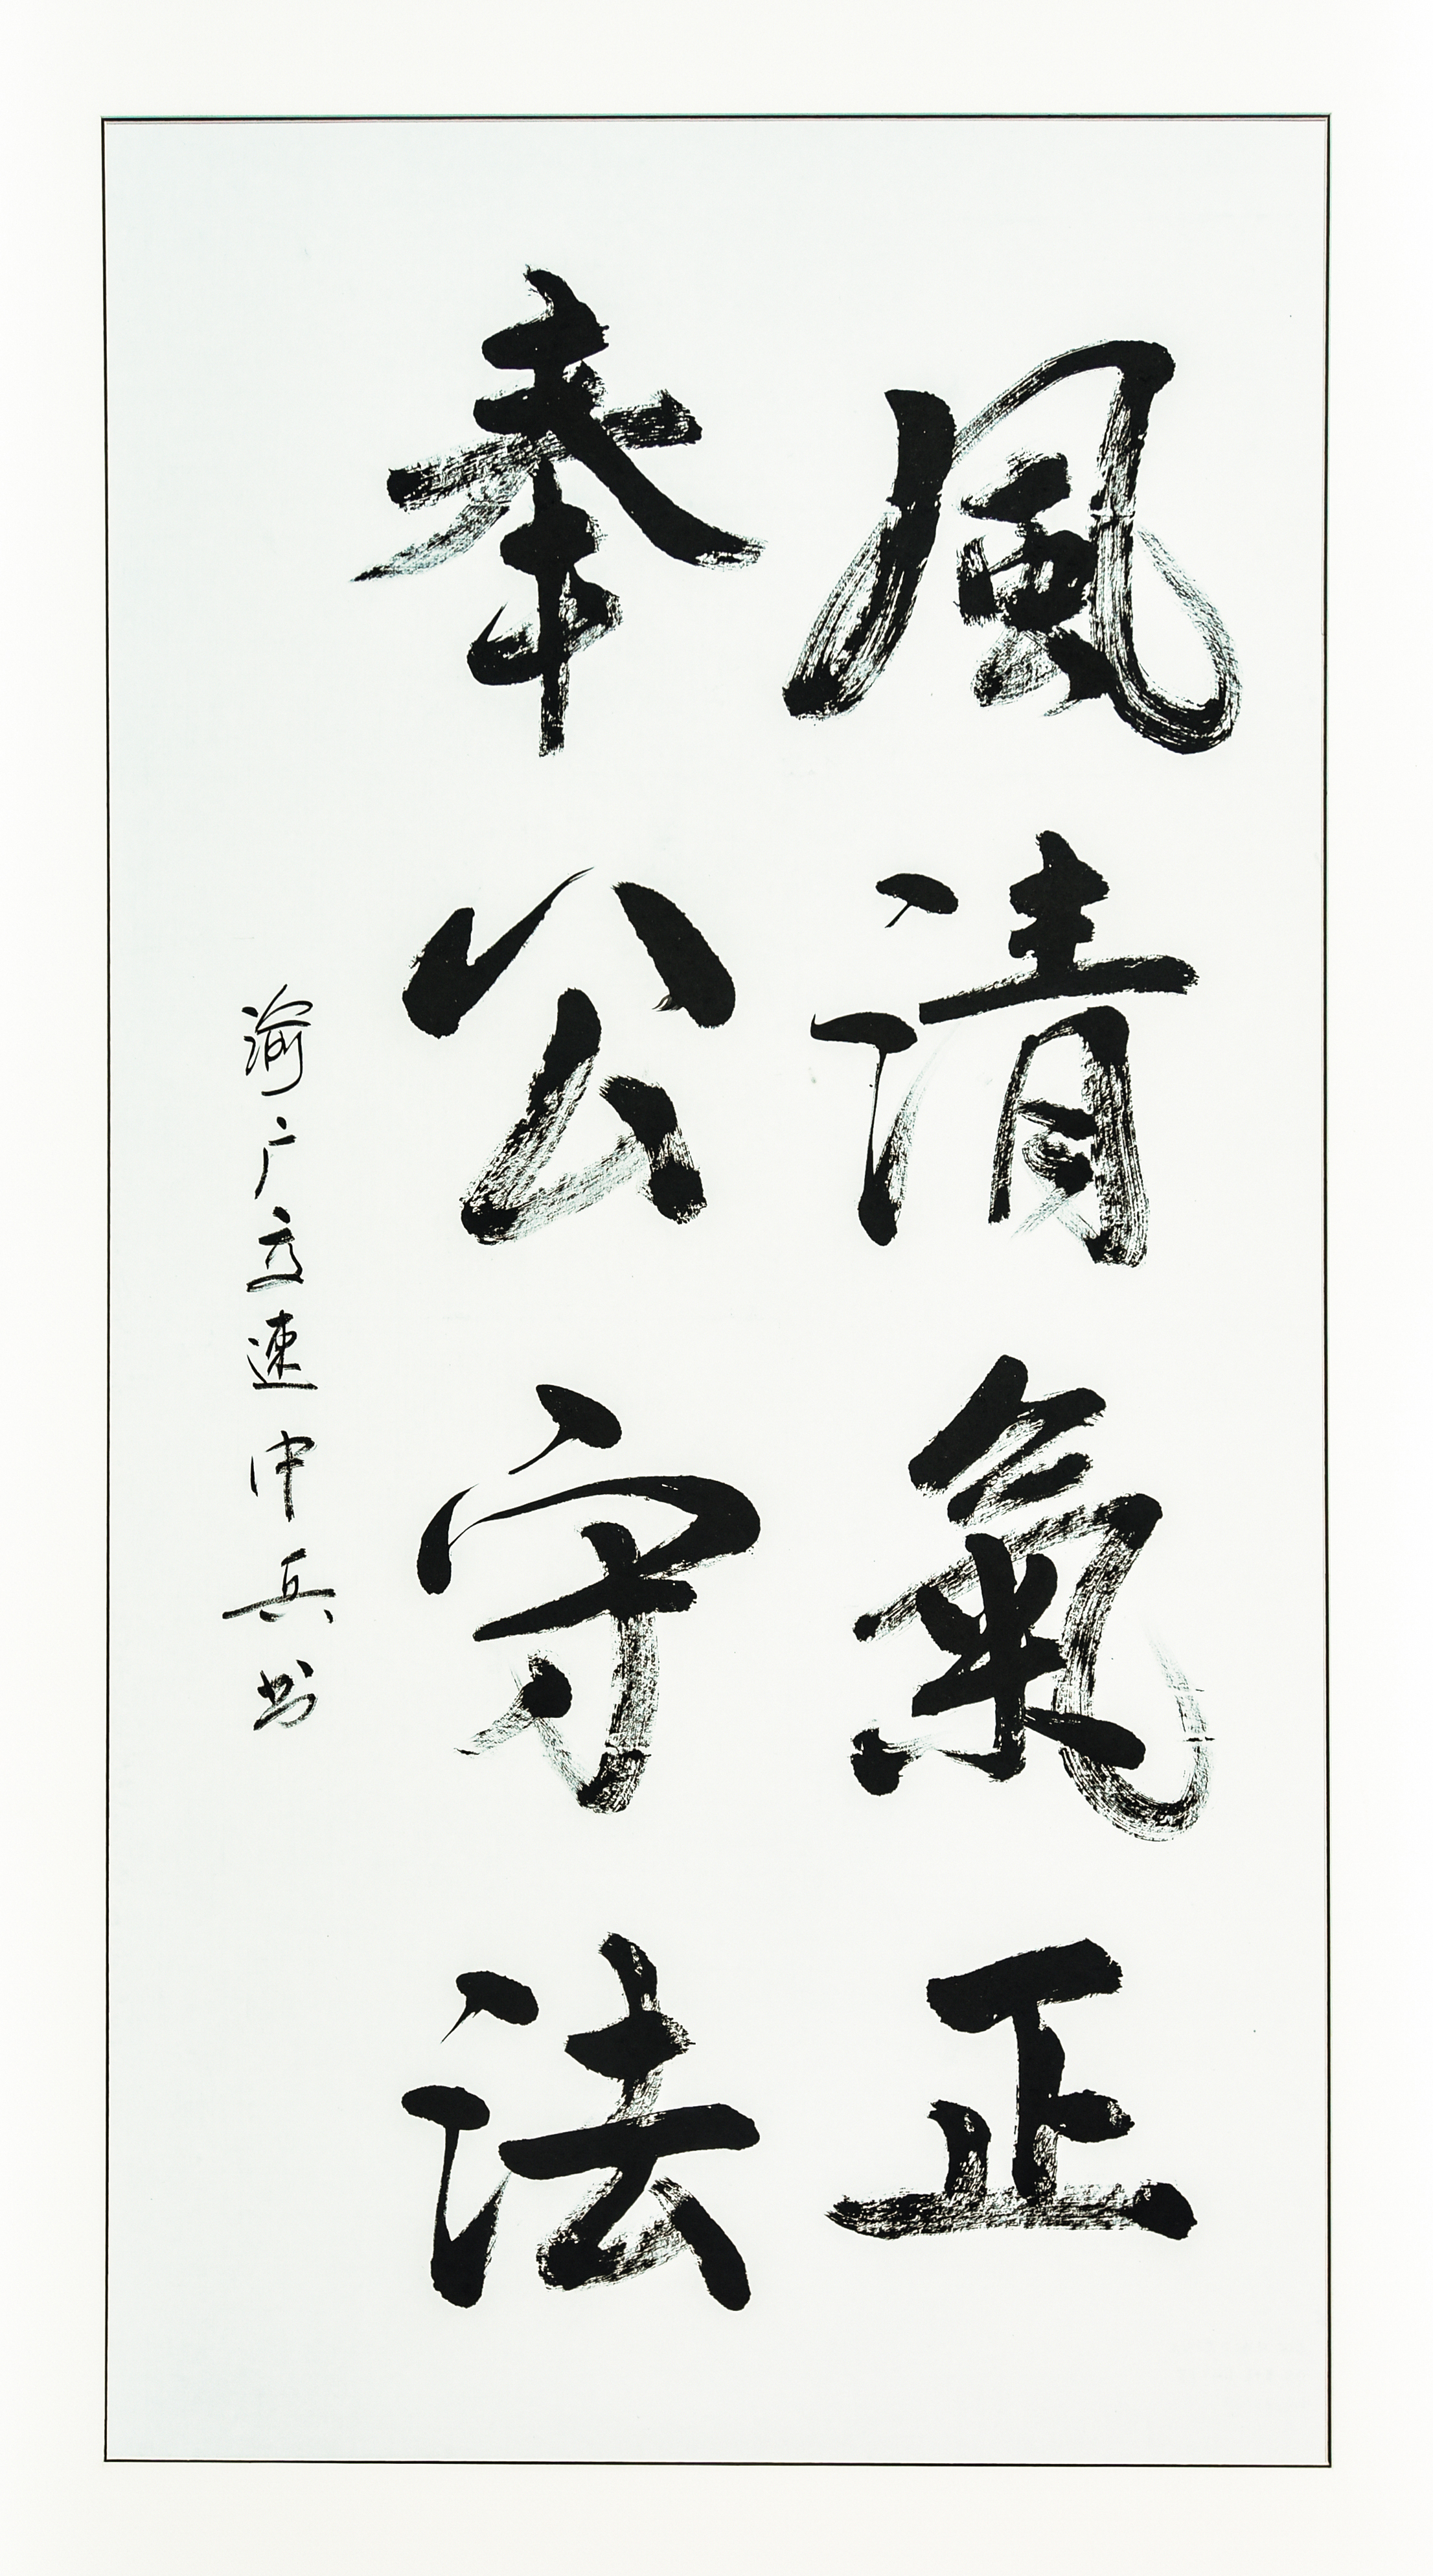 風清氣正
奉公守法
渝广高速 中兵书